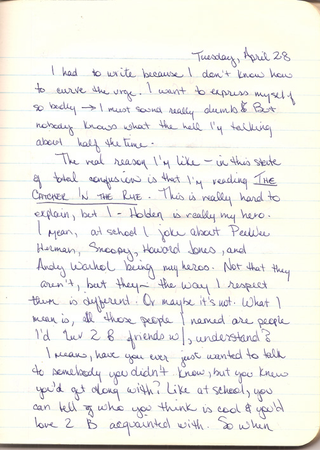 Tuesday, April 28
I had to write because I don't know how
to curve the urge. I want to express myself
so badly → I must sound really dumb & But
nobody knows what the hell I'm talking
about half the time.
The real reason I'm like – in this state
of total confusion is that I'm reading THE
CATCHER IN THE RYE. This is really hard to
explain, but I – Holden is really my hero.
I mean, at school I joke about PeeWee
Herman, Snoopy, Howard Jones, and
Andy Warhol being my heros. Not that they
aren't, but they – the way I respect
them is different. Or maybe it's not. What I
mean is, all those people I named are people
I'd luv 2 B friends w/, understand?
I means, have you ever just wanted to talk
to somebody you didn't know, but you knew
you'd get along with? Like at school, you
can tell who you think is cool & you'd
love 2 B acquainted with. So when